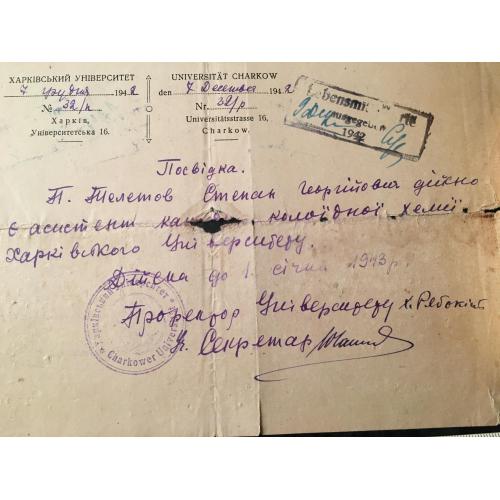 ХАРКІВСЬКИЙ УНІВЕРСИТЕТ
7 грудня 1942
№ 32/п
Харків,
Університетська 16.
UNIVERSITÄT CHARKOW
den 7 Dezember 1942
Nr. 32/p
Universitätsstrasse 16,
Charkow.
Lebensmittelkarte
ausgegeben
1942
Посвідка.
Т. Телетов Степан Георгійович дійсно
є асистент колоїдної хемії
Харківського Університету.
Дійсна до 1 січня 1943 р.
Проректор Університету
Секретар
Charkower Universität